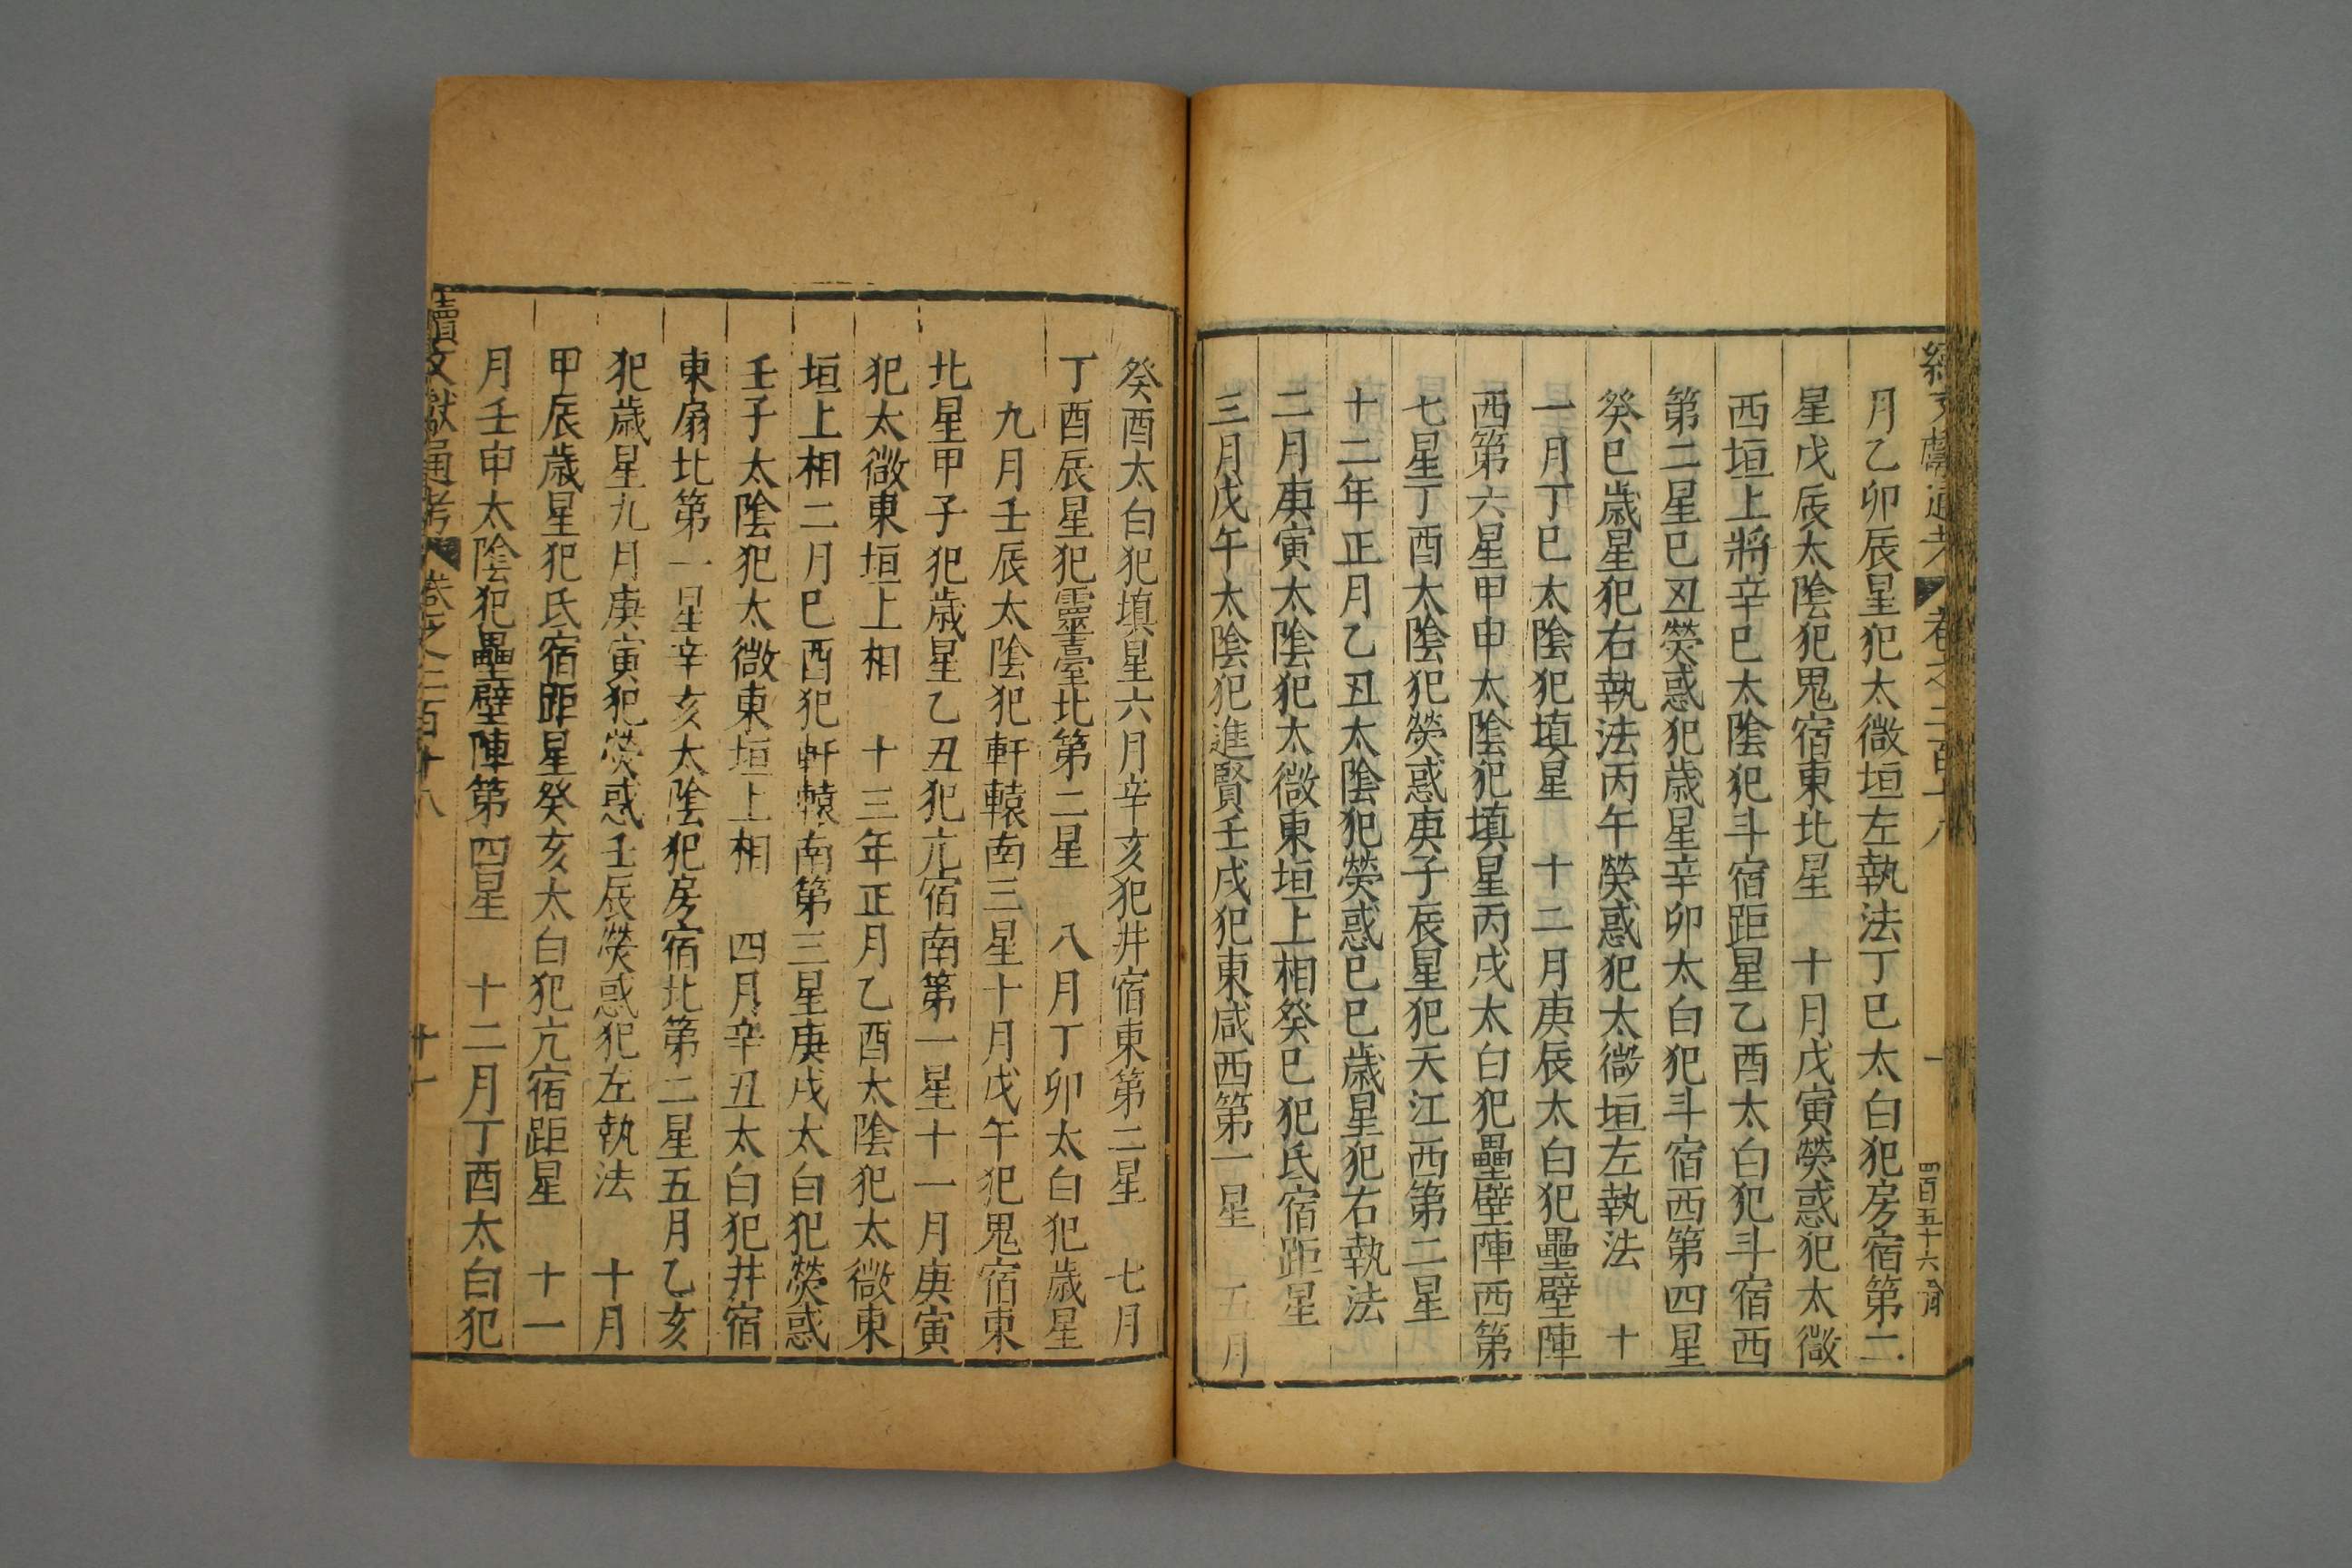 月乙卯辰星犯太微垣左執法丁巳太白犯房宿第二
星戊辰太陰犯鬼宿東北星 十月戊寅熒惑犯太微
西垣上將辛巳太陰犯斗宿距星乙酉太白犯斗宿西
第二星巳丑熒惑犯歲星辛卯太白犯斗宿西第四星
癸巳歲星犯右執法丙午熒惑犯太微垣左執法 十
一月丁巳太陰犯填星 十二月庚辰太白犯壘壁陣
西第六星甲申太陰犯填星丙戌太白犯壘壁陣西第
七星丁酉太陰犯熒惑庚子辰星犯天江西第二星
十二年正月乙丑太陰犯熒惑巳巳歲星犯右執法
二月庚寅太陰犯太微東垣上相癸巳犯氐宿距星
三月戊午太陰犯進賢壬戌犯東咸西第一星 五月
癸酉太白犯填星六月辛亥犯井宿東第二星 七月
丁酉辰星犯靈臺北第二星 八月丁卯太白犯歲星
九月壬辰太陰犯軒轅南三星十月戊午犯鬼宿東
北星甲子犯歲星乙丑犯亢宿南第一星十一月庚寅
犯太微東垣上相 十三年正月乙酉太陰犯太微東
垣上相二月巳酉犯軒轅南第三星庚戌太白犯熒惑
壬子太陰犯太微東垣上相 四月辛丑太白犯井宿
東扇北第一星辛亥太陰犯房宿北第二星五月乙亥
犯歲星九月庚寅犯熒惑壬辰熒惑犯左執法 十月
甲辰歲星犯氐宿距星癸亥太白犯亢宿距星 十一
月壬申太陰犯壘壁陣第四星 十二月丁酉太白犯
續文獻通考 卷之二百十八